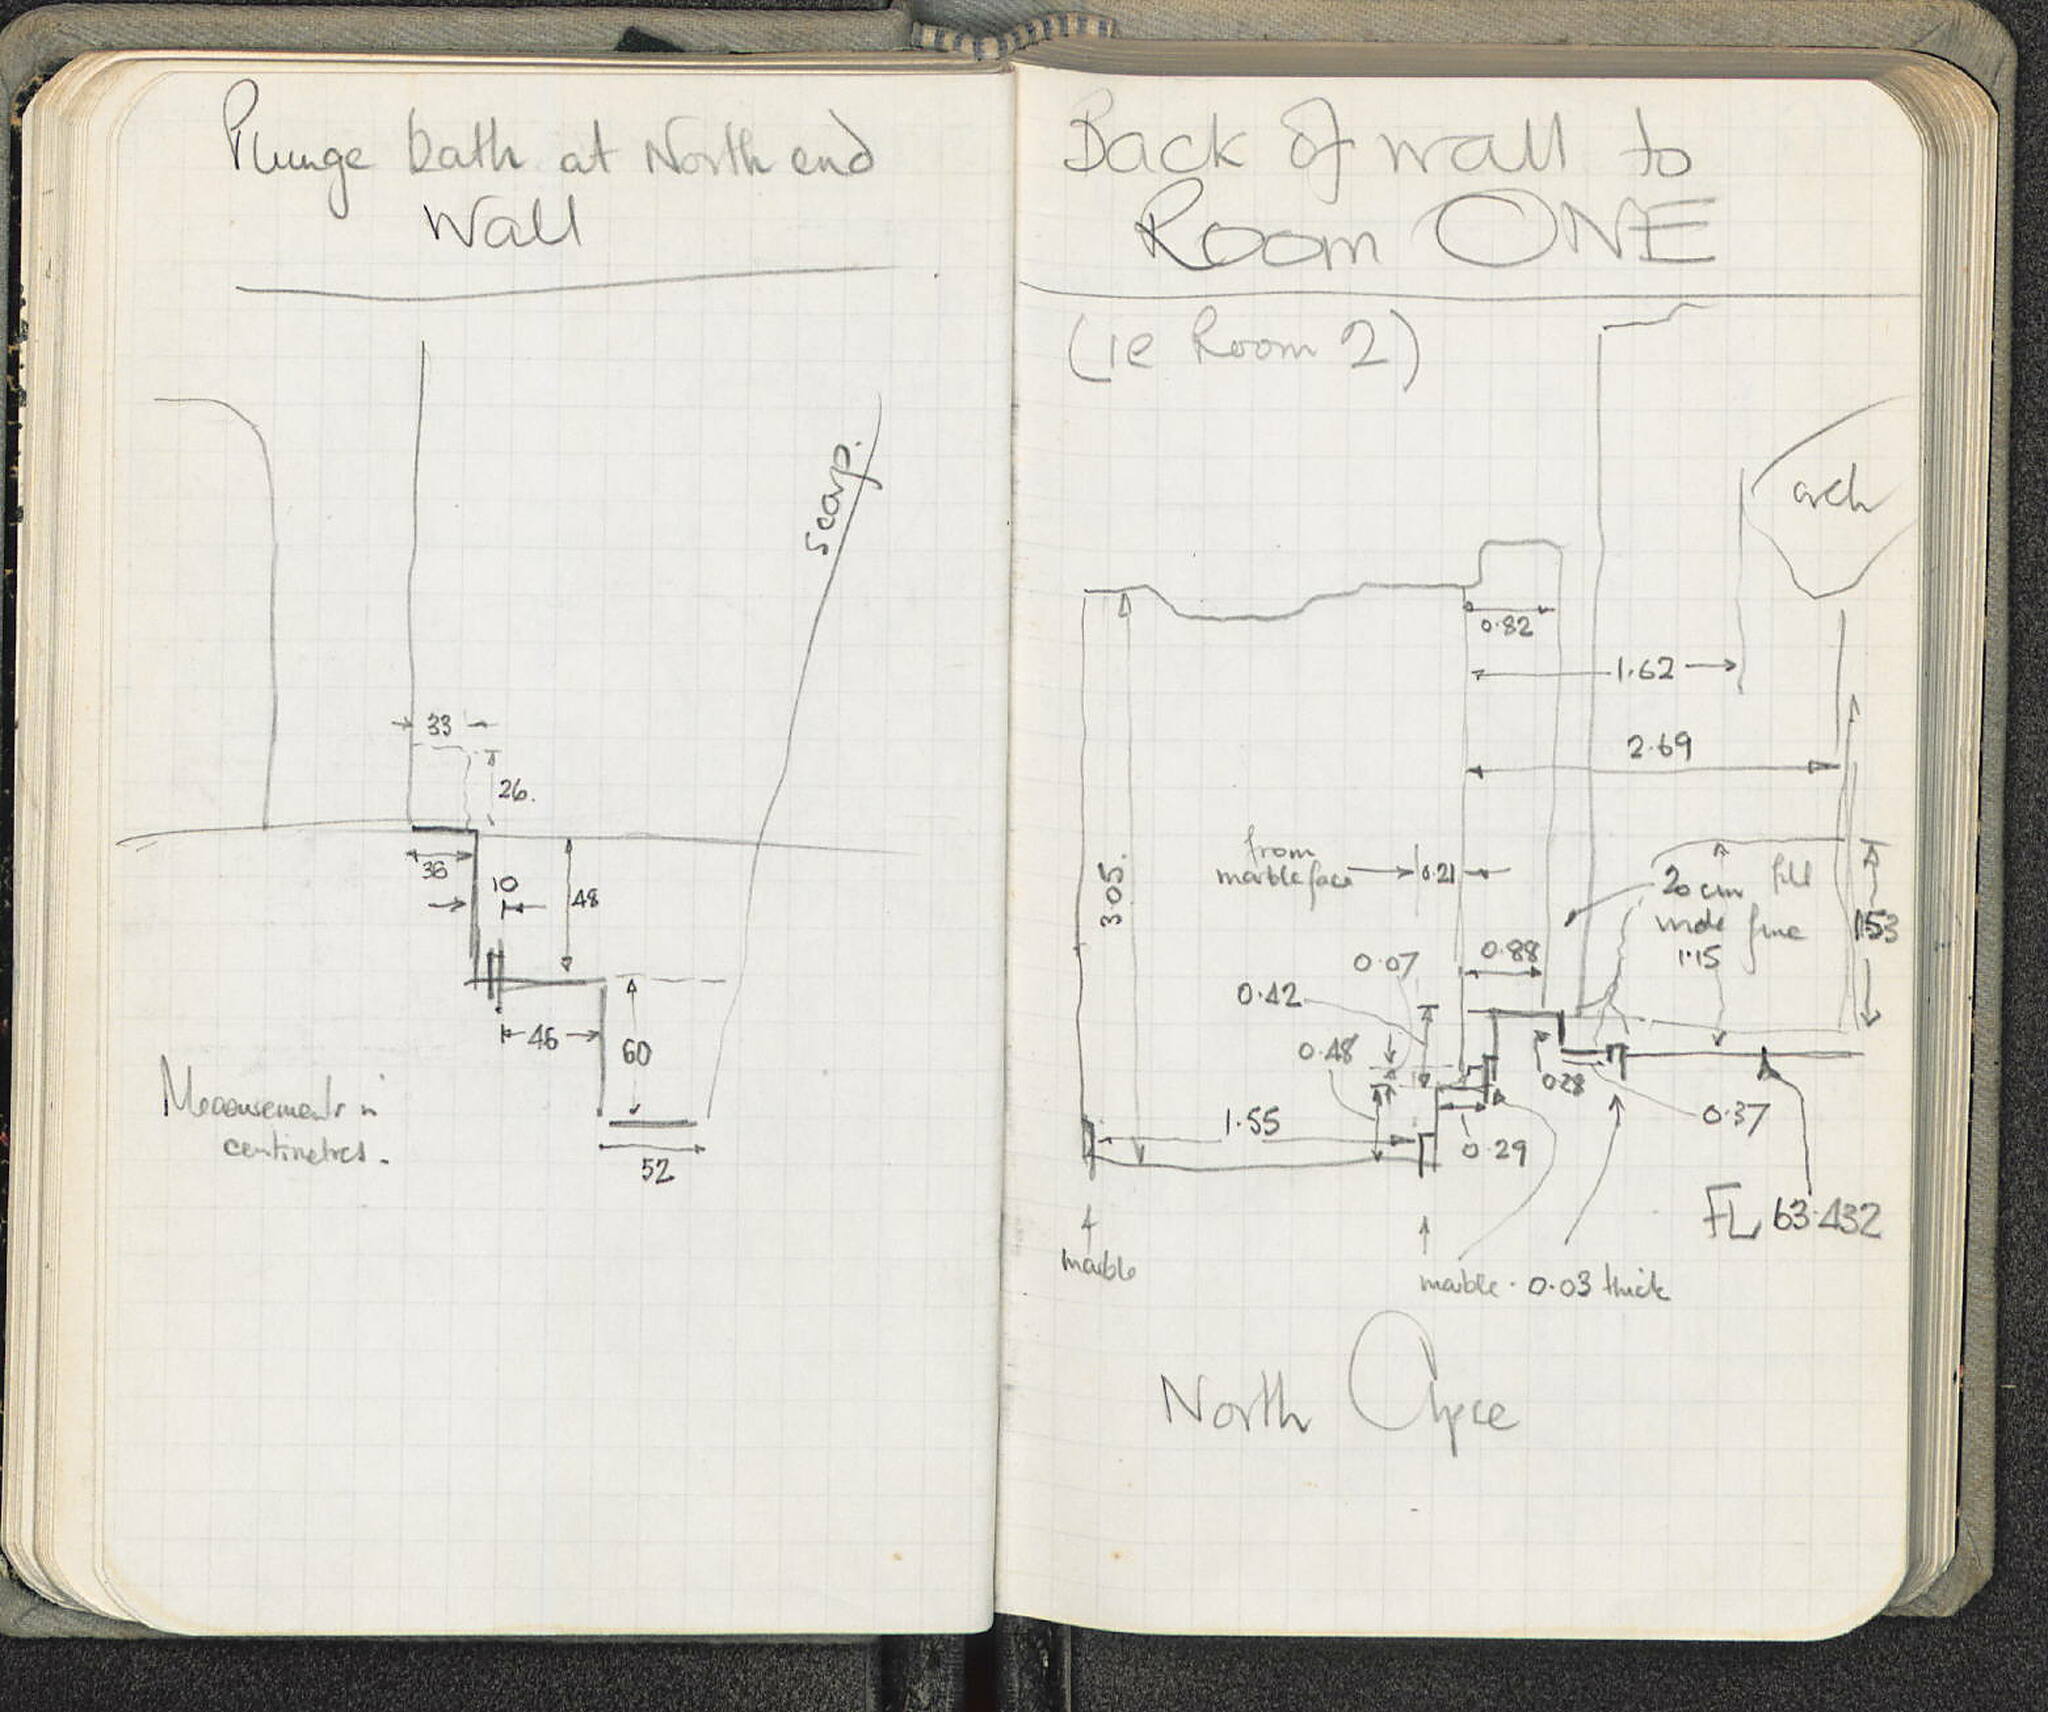 Plunge bath at North end
Wall
Scarp.
33
26.
36
10
48
46
60
52
Measurements in
centimetres.
Back of wall to
Room ONE
(ie Room 2)
arch
0.82
1.62
2.69
from
marble face
0.21
3.05.
20 cm fill
wide flue
1.15
1.53
0.88
0.07
0.42
0.48
0.28
1.55
0.37
0.29
FL 63.432
marble
marble. 0.03 thick
North Apse